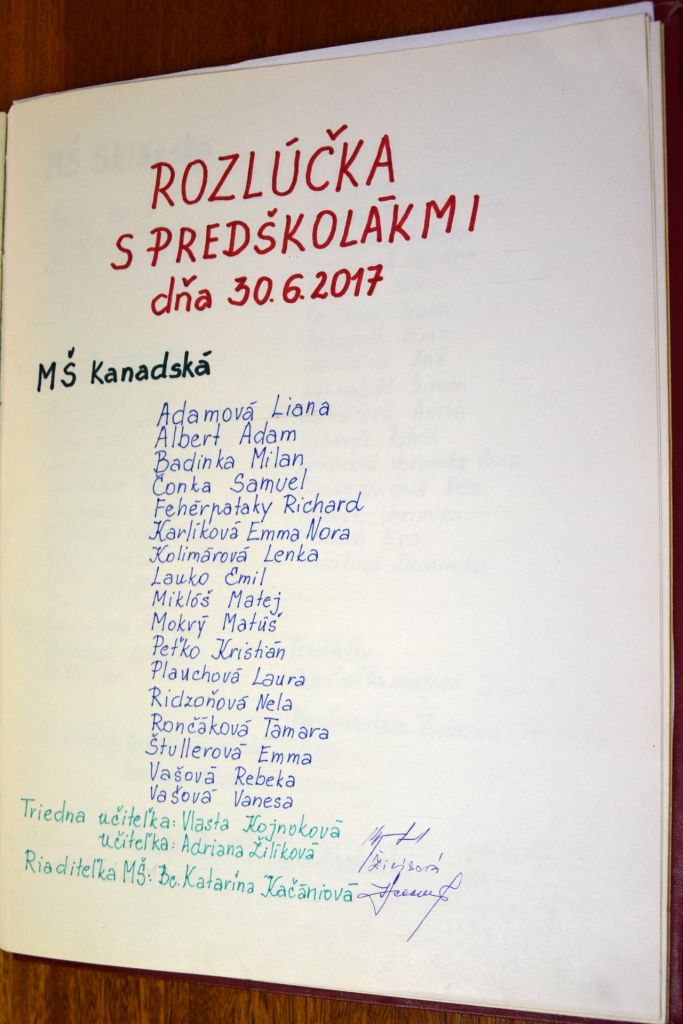 ROZLÚČKA
S PREDŠKOLÁKMI
dňa 30.6.2017
MŠ Kanadská
Adamová Liana
Albert Adam
Badinka Milan
Čonka Samuel
Fehérpataky Richard
Karlíková Emma Nora
Kolimárová Lenka
Lauko Emil
Miklóš Matej
Mokrý Matúš
Peťko Kristián
Plauchová Laura
Ridzoňová Nela
Rončáková Tamara
Štullerová Emma
Vašová Rebeka
Vašová Vanesa
Triedna učiteľka: Vlasta Kojnoková
učiteľka: Adriana Žilíková
Riaditeľka MŠ: Bc. Katarína Kačániová